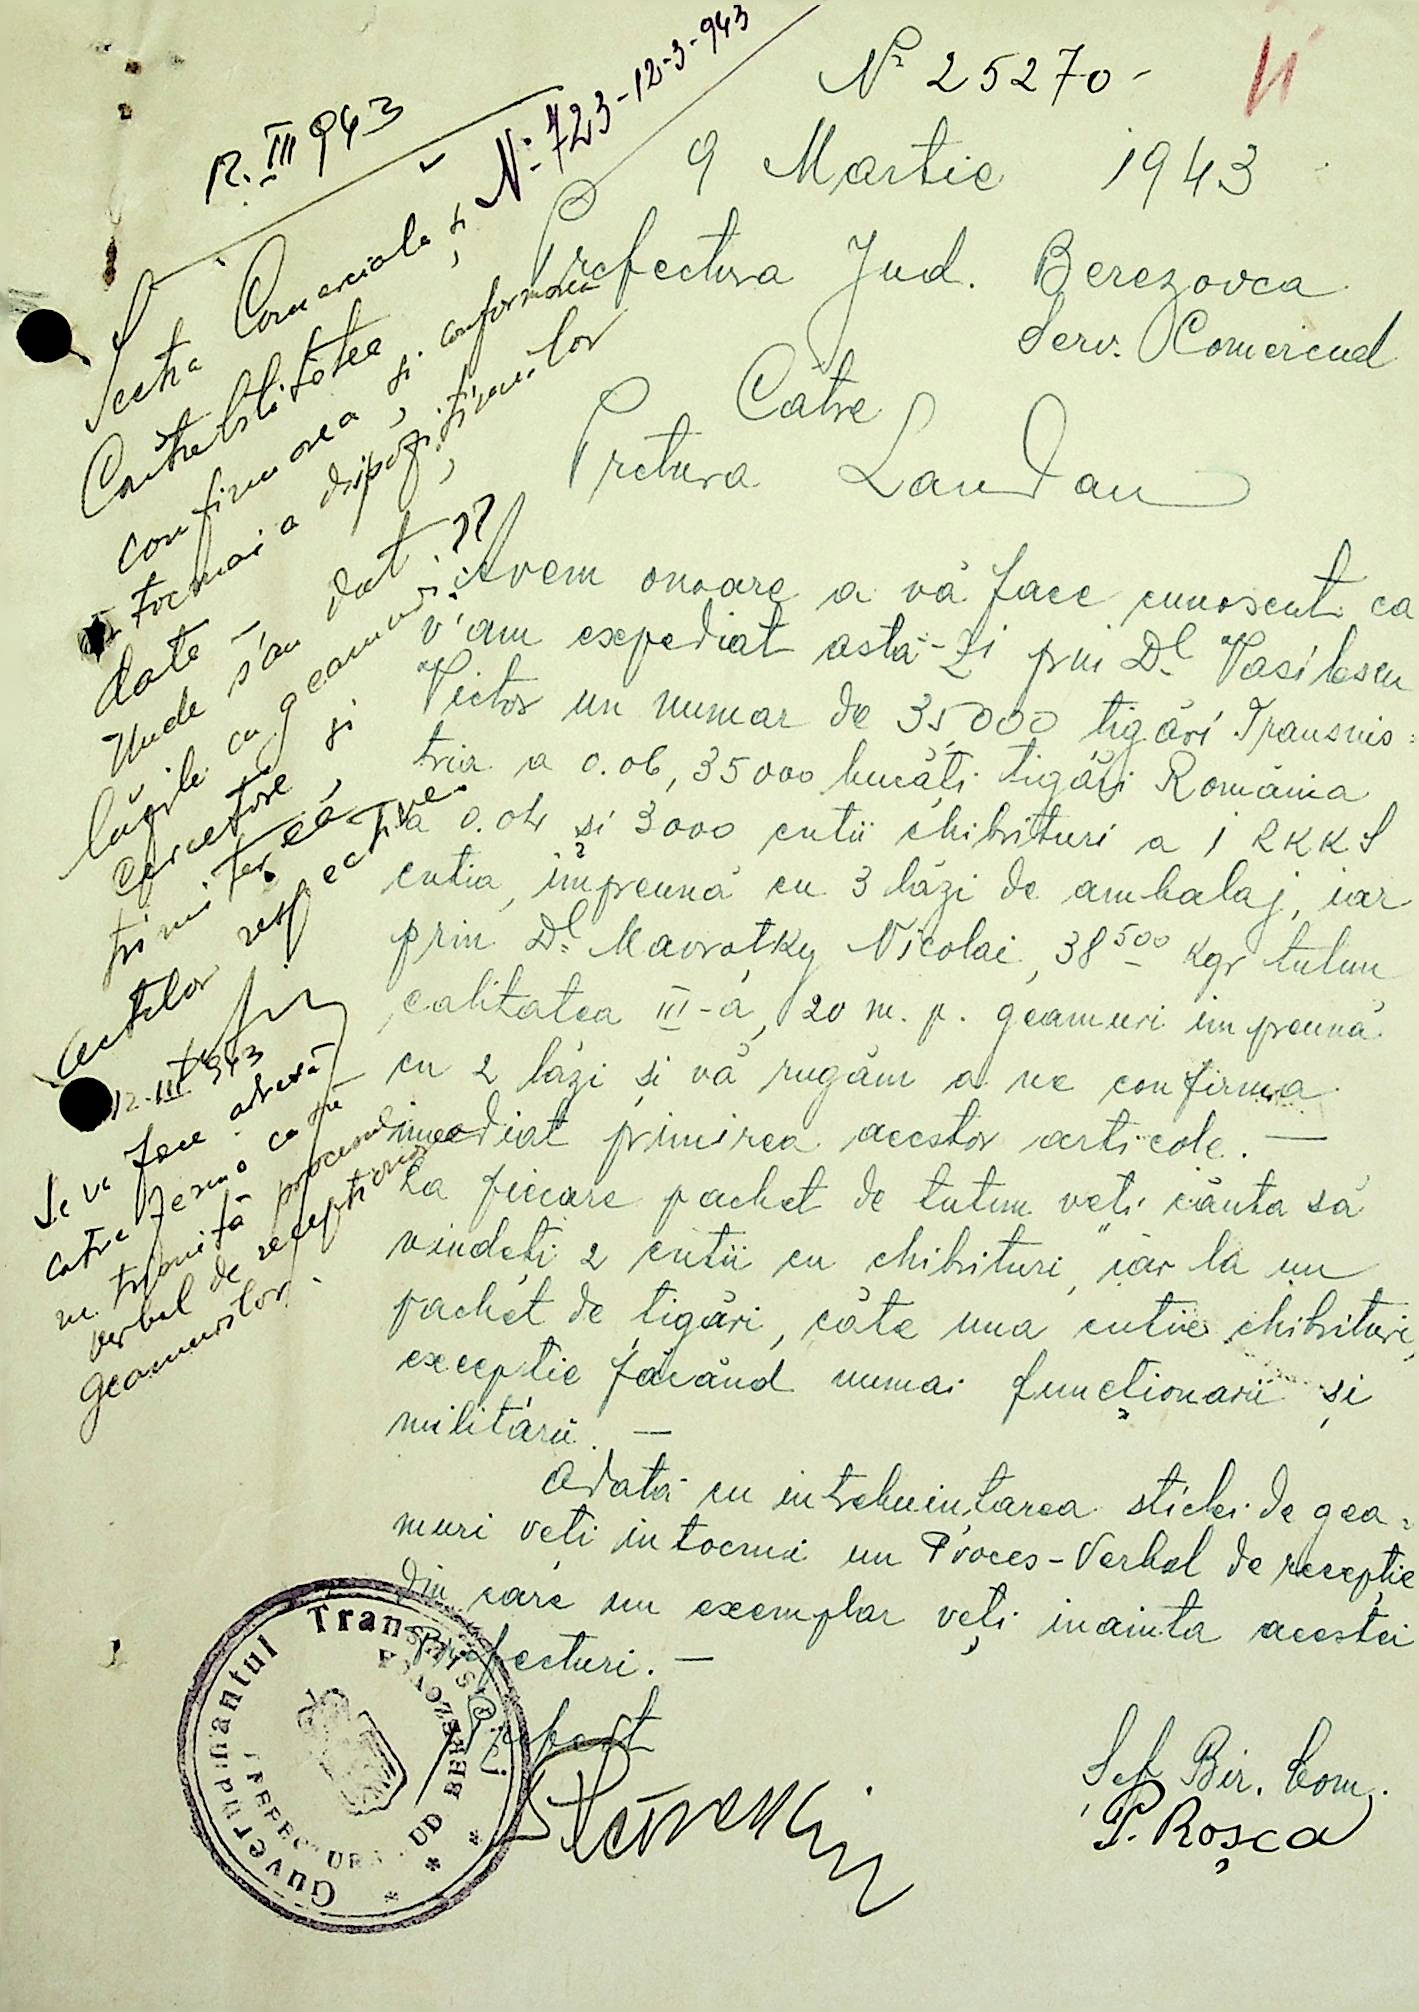 Nº 25270-
9 Martie 1943
Prefectura Jud. Berezovca
Serv. Comercial
Către
Pretura Landau
Avem onoare a vă face cunoscut ca
v'am expediat astă-zi prin Dl Vasilescu
Victor un numar de 35000 tigări Transnis=
tria a 0.06, 35000 bucăți tigări România
a 0.04 și 3000 cutii chibrituri a 1 RKKS
cutia, împreună cu 3 lăzi de ambalaj, iar
prin Dl Mavrotky Nicolai, 38500 kgr tutun
calitatea III-a, 20 m.p. geamuri impreună
cu 2 lăzi și vă rugăm a ne confirma
imediat primirea acestor articole. —
La fiecare pachet de tutun veti căuta să
vindeți 2 cutii cu chibrituri, iar la un
pachet de țigări, câte una cutie chibrituri,
exceptie făcând numai funcționarii și
militarii. —
Odată cu intrebuințarea sticlei de gea=
muri veți intocmi un Proces-Verbal de recepție
din care un exemplar veți inainta acestei
Prefecturi. —
Prefect
Șef Bir. Com.
P. Roșca
12. III 943
Nº 723-12-3-943
Secția Comercială și
Contabilitatea
confirmarea și conformarea
întocmai a dispozițiunilor
date —
Unde s'au dat
lăzile cu geamuri ??
Cercetare și
trimiterea
actelor respective.
12.III 943
Se va face adresă
catre ferma ca să
ne trimită procesul
verbal de recepționarea
geamurilor.
Guvernamantul Transnistriei
PREFECTURA JUD BEREZOVCA